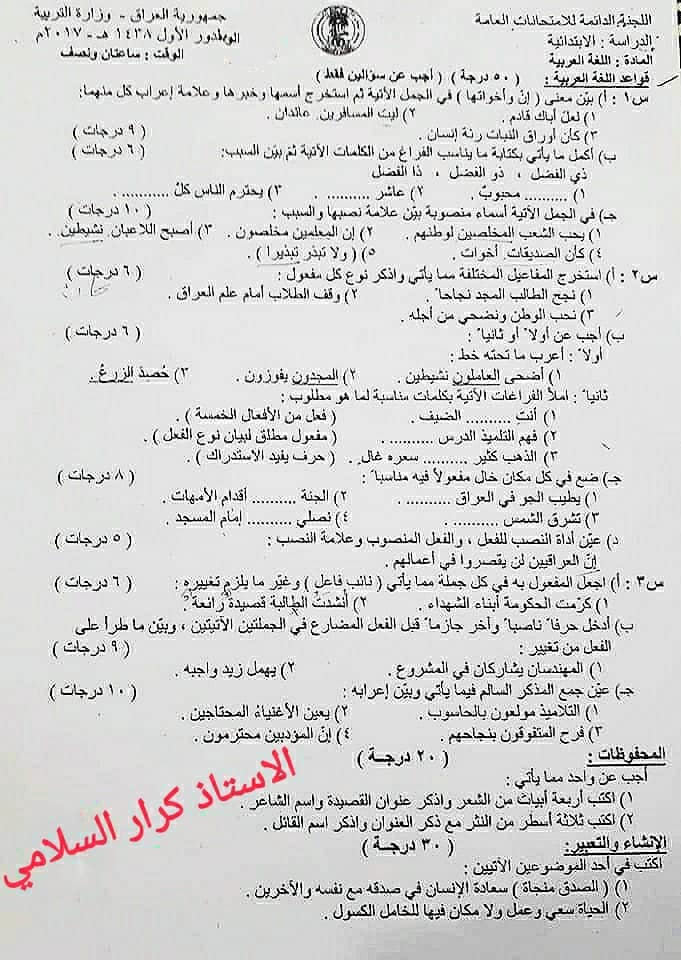 اللجنة الدائمة للامتحانات العامة
جمهورية العراق - وزارة التربية
الدراسة : الابتدائية
الدور الأول ١٤٣٨ هـ - ٢٠١٧م
المادة : اللغة العربية
الوقت : ساعتان ونصف
قواعد اللغة العربية : ( ٥٠ درجة ) ( أجب عن سؤالين فقط )
س١ : أ) بيّن معنى ( إنّ وأخواتها ) في الجمل الآتية ثم استخرج أسمها وخبرها وعلامة إعراب كل منهما:
١) لعلّ أباك قادم . ٢) ليت المسافرين عائدان .
٣) كأن أوراق النبات رئة إنسان . ( ٩ درجات )
ب) أكمل ما يأتي بكتابة ما يناسب الفراغ من الكلمات الآتية ثم بيّن السبب: ( ٦ درجات )
ذي الفضل ، ذو الفضل ، ذا الفضل
١) .......... محبوبٌ . ٢) عاشر .......... . ٣) يحترم الناس كلّ .......... .
جـ) في الجمل الآتية أسماء منصوبة بيّن علامة نصبها والسبب: ( ١٠ درجات )
١) يحب الشعب المخلصين لوطنهم . ٢) إن المعلمين مخلصون . ٣) أصبح اللاعبان نشيطين .
٤) كأن الصديقات أخوات . ٥) ( ولا تبذر تبذيرا ) .
س٢ : أ) استخرج المفاعيل المختلفة مما يأتي واذكر نوع كل مفعول : ( ٦ درجات )
١) نجح الطالب المجد نجاحاً . ٢) وقف الطلاب أمام علم العراق .
٣) نحب الوطن ونضحي من أجله .
ب) أجب عن أولاً أو ثانياً : ( ٦ درجات )
أولاً : أعرب ما تحته خط :
١) أضحى العاملون نشيطين . ٢) المجدون يفوزون . ٣) حُصدَ الزرعُ .
ثانياً : املأ الفراغات الآتية بكلمات مناسبة لما هو مطلوب :
١) أنتِ .......... الضيف . ( فعل من الأفعال الخمسة )
٢) فهم التلميذ الدرس .......... . ( مفعول مطلق لبيان نوع الفعل ) .
٣) الذهب كثير .......... سعره غال . ( حرف يفيد الاستدراك ) .
جـ) ضع في كل مكان خال مفعولاً فيه مناسباً : ( ٨ درجات )
١) يطيب الجو في العراق .......... . ٢) الجنة .......... أقدام الأمهات .
٣) تشرق الشمس .......... . ٤) نصلي .......... إمام المسجد .
د) عيّن أداة النصب للفعل ، والفعل المنصوب وعلامة النصب : ( ٥ درجات )
إنّ العراقيين لن يقصروا في أعمالهم .
س٣ : أ) اجعل المفعول به في كل جملة مما يأتي ( نائب فاعل ) وغيّر ما يلزم تغييره : ( ٦ درجات )
١) كرّمت الحكومة أبناء الشهداء . ٢) أنشدت الطالبة قصيدة رائعة .
ب) أدخل حرفاً ناصباً وآخر جازماً قبل الفعل المضارع في الجملتين الآتيتين ، وبيّن ما طرأ على
الفعل من تغيير : ( ٩ درجات )
١) المهندسان يشاركان في المشروع . ٢) يهمل زيد واجبه .
جـ) عيّن جمع المذكر السالم فيما يأتي وبيّن إعرابه : ( ١٠ درجات )
١) التلاميذ مولعون بالحاسوب . ٢) يعين الأغنياء المحتاجين .
٣) فرح المتفوقون بنجاحهم . ٤) إنّ المؤدبين محترمون .
المحفوظات : ( ٢٠ درجة )
أجب عن واحد مما يأتي :
١) اكتب أربعة أبيات من الشعر واذكر عنوان القصيدة واسم الشاعر .
٢) اكتب ثلاثة أسطر من النثر مع ذكر العنوان واذكر اسم القائل .
الإنشاء والتعبير: ( ٣٠ درجة )
اكتب في أحد الموضوعين الآتيين :
١) ( الصدق منجاة ) سعادة الإنسان في صدقه مع نفسه والآخرين .
٢) الحياة سعي وعمل ولا مكان فيها للخامل الكسول .
الاستاذ كرار السلامي